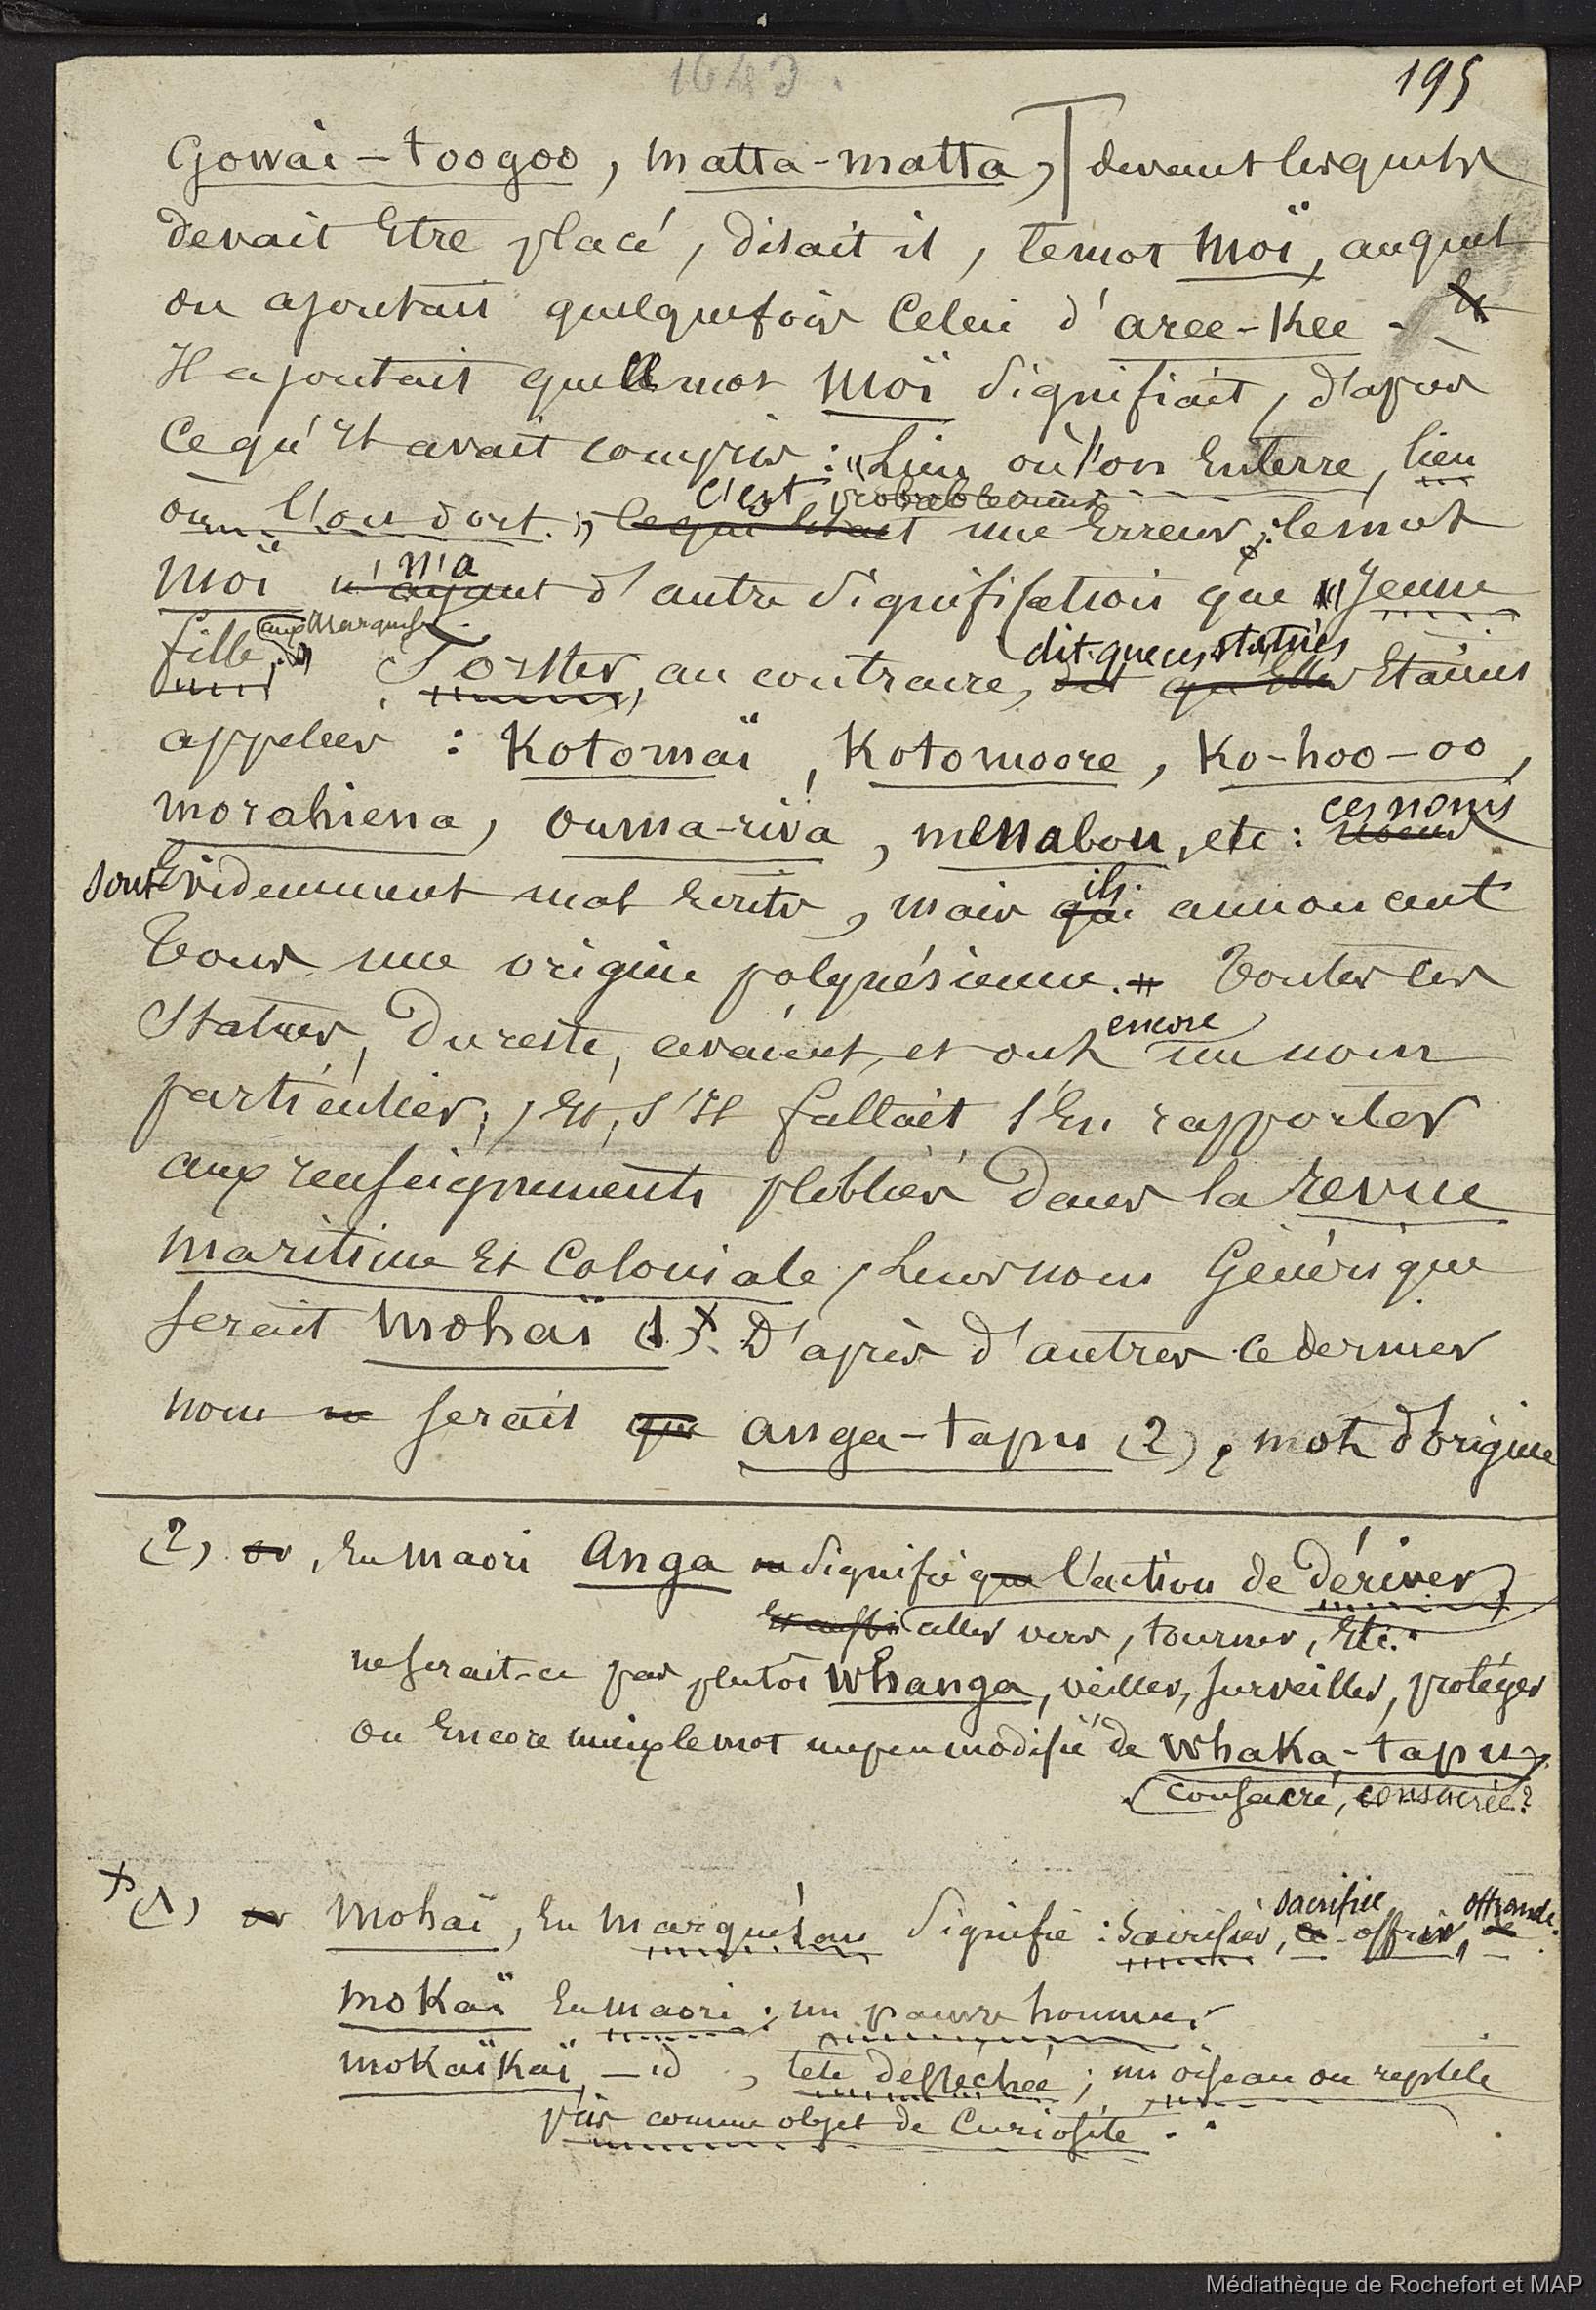 1643.
195
Gowai-toogoo, matta-matta, devant lesquels
devait Etre placé, disait il, le mot Moï, auquel
on ajoutait quelquefois Celui d'aree-Kee. Et
Il ajoutait que le mot Moï signifiait, d'après
Ce qu'Il avait compris : "Lieu où l'on Enterre, lieu
c'est probablement
où l'on dort." ce qui était une Erreur; le mot
n'a
Moï n'ayant d'autre signification que "Jeune
aux Marquises
dit que ces statues
fille." Forster, au contraire, dit qu'Elles Etaient
appelées : Kotomaï, Kotomoore, Ko-hoo-oo,
ces noms
morahiena, ouma-riva, menabou, etc: noms
ils
sont Evidemment mal Ecrits, mais qui annoncent
Tous une origine polynésienne. Toutes les
encore
Statues, du reste, avaient, et ont un nom
particulier; Et, s'Il fallait s'En rapporter
aux renseignements publiés dans la revue
maritime Et Coloniale, Leur nom Générique
serait Mohaï (1) X. D'après d'autres ce dernier
nom ne serait que anga-tapu (2), mot d'origine
(2) or, En maori Anga ne signifie que l'action de dériver,
Et aussi aller vers, tourner, Etc.
ne serait-ce pas plutôt Whanga, veiller, surveiller, protéger
ou Encore mieux le mot un peu modifié de Whaka-tapu,
consacré, consacrée?
sacrifice, offrande.
X (1) or Mohaï, En marquésan signifie : Sacrifier, ce offrir, de
moKaï En maori : un pauvre homme;
moKaïKaï, — id, tête desséchée; un oiseau ou reptile
pris comme objet de Curiosité.
Médiathèque de Rochefort et MAP